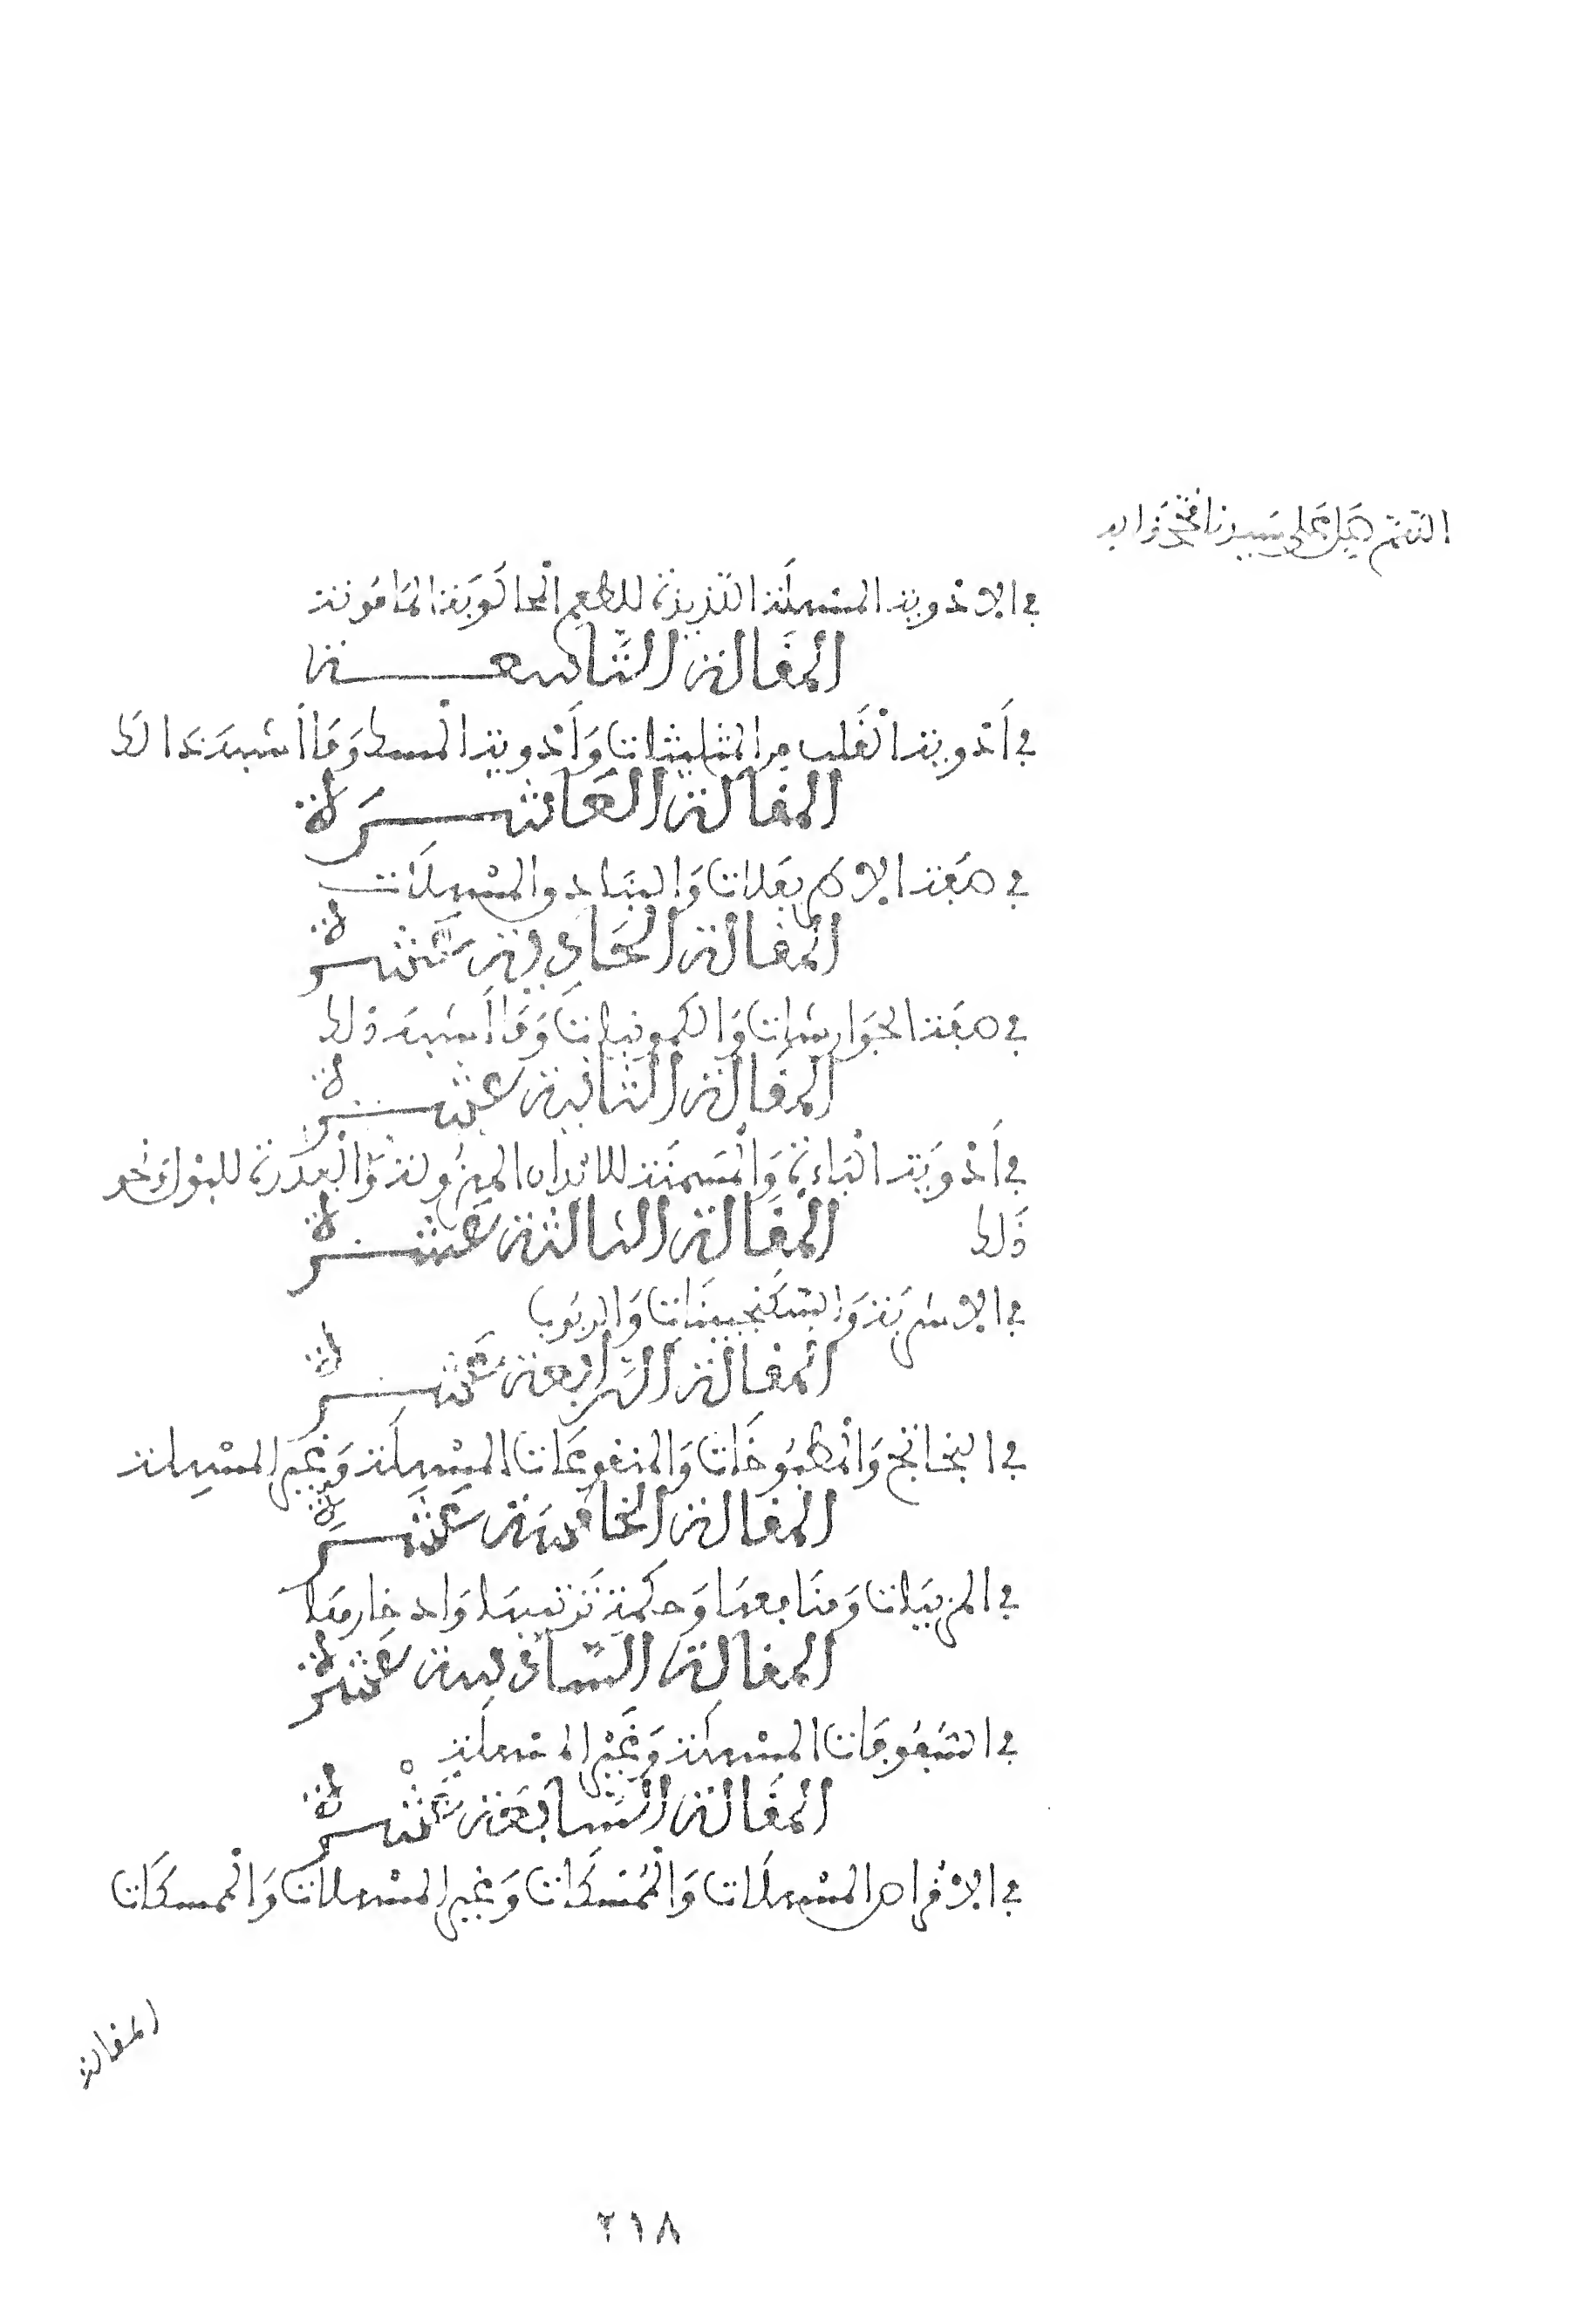 اللهم صل على سيدنا محمد وآله
في الادوية المسهلة اللذيذة للطعم الحالوية المامونة
المقالة التاسعــــة
في أدوية القلب من المثليثات وأدوية المسك وما أشبه ذالك
المقالة العاشــــرة
في صفة الاطريفلات والبنادق المسهلات
المقالة الحادية عشـرة
في صفة الجوارشات والكمونيات وما أشبه ذلك
المقالة الثانية عشــرة
في أدوية الباءة والمسمنة للابدان المهزولة والمدرة للبول ونحو
ذلك
المقالة الثالثة عشــرة
في الاشربة والسكنجبينات والربوب
المقالة الرابعة عشــرة
في البخاتج والمطبوخات والمنقوعات المسهلة وغير المسهلة
المقالة الخامسة عشــرة
في المربيات ومنافعها وحكمة تربيبها وادخارها
المقالة السادسة عشرة
في السفوفات المسهلة وغير المسهلة
المقالة السابعة عشـرة
في الاقراص المسهلات والممسكات وغير المسهلات والممسكات
المقالة
٢١٨